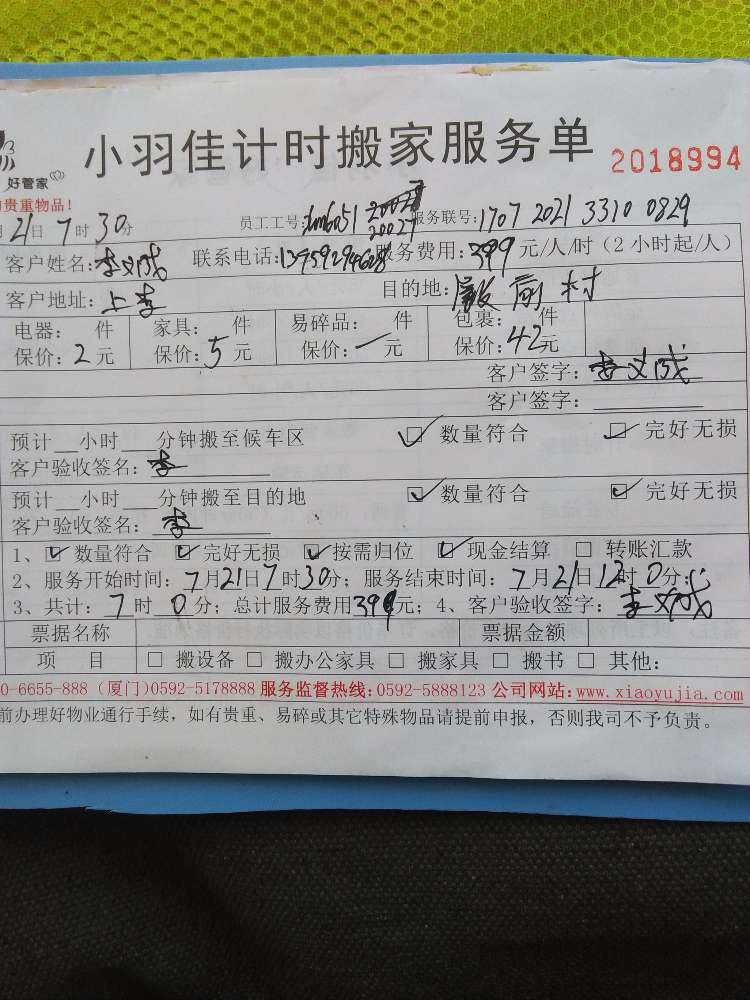 小羽佳计时搬家服务单 2018994
好管家
贵重物品!
月21日7时30分 员工工号: 20027 服务联号:1707 2021 3310 0829
客户姓名: 联系电话: 服务费用:399元/人/时(2小时起/人)
客户地址:上李 目的地:殿前村
电器: 件 家具: 件 易碎品: 件 包装: 件
保价:2元 保价:5元 保价:一元 保价:42元
客户签字:
客户签字:
预计__小时___分钟搬至候车区 ☑ 数量符合 ☑ 完好无损
客户验收签名:李
预计__小时___分钟搬至目的地 ☑ 数量符合 ☑ 完好无损
客户验收签名:李
1、☑ 数量符合 ☑ 完好无损 ☑ 按需归位 ☑ 现金结算 □ 转账汇款
2、服务开始时间:7月21日7时30分;服务结束时间:7月21日12时0分;
3、共计:7时0分;总计服务费用399元;4、客户验收签字:
票据名称 票据金额
项 目 □ 搬设备 □ 搬办公家具 □ 搬家具 □ 搬书 □ 其他:
0-6655-888 (厦门)0592-5178888 服务监督热线:0592-5888123 公司网站:www.xiaoyujia.com
前办理好物业通行手续，如有贵重、易碎或其它特殊物品请提前申报，否则我司不予负责。